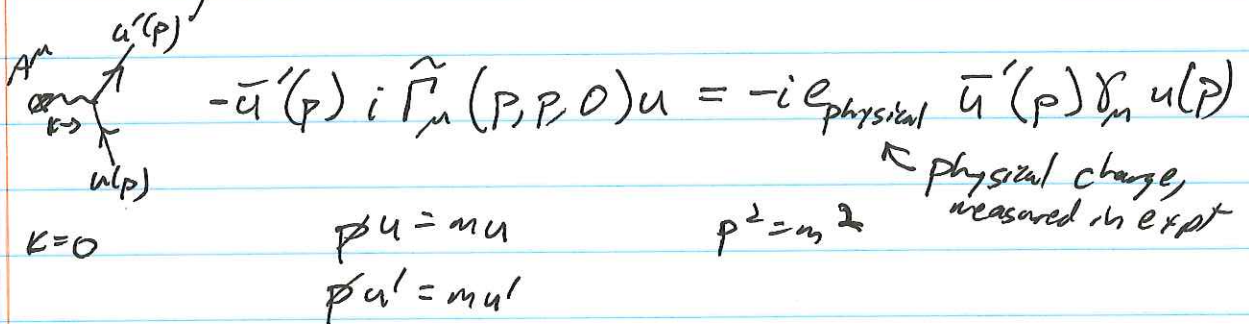 u'(p)
Aᵘ
-ū'(p) i Γ̃_μ (p,p,0)u = -i e_physical ū'(p)γ_μ u(p)
k→
u(p)
↖ physical charge,
measured in expt
k=0
p̸u = mu
p² = m²
p̸u' = mu'